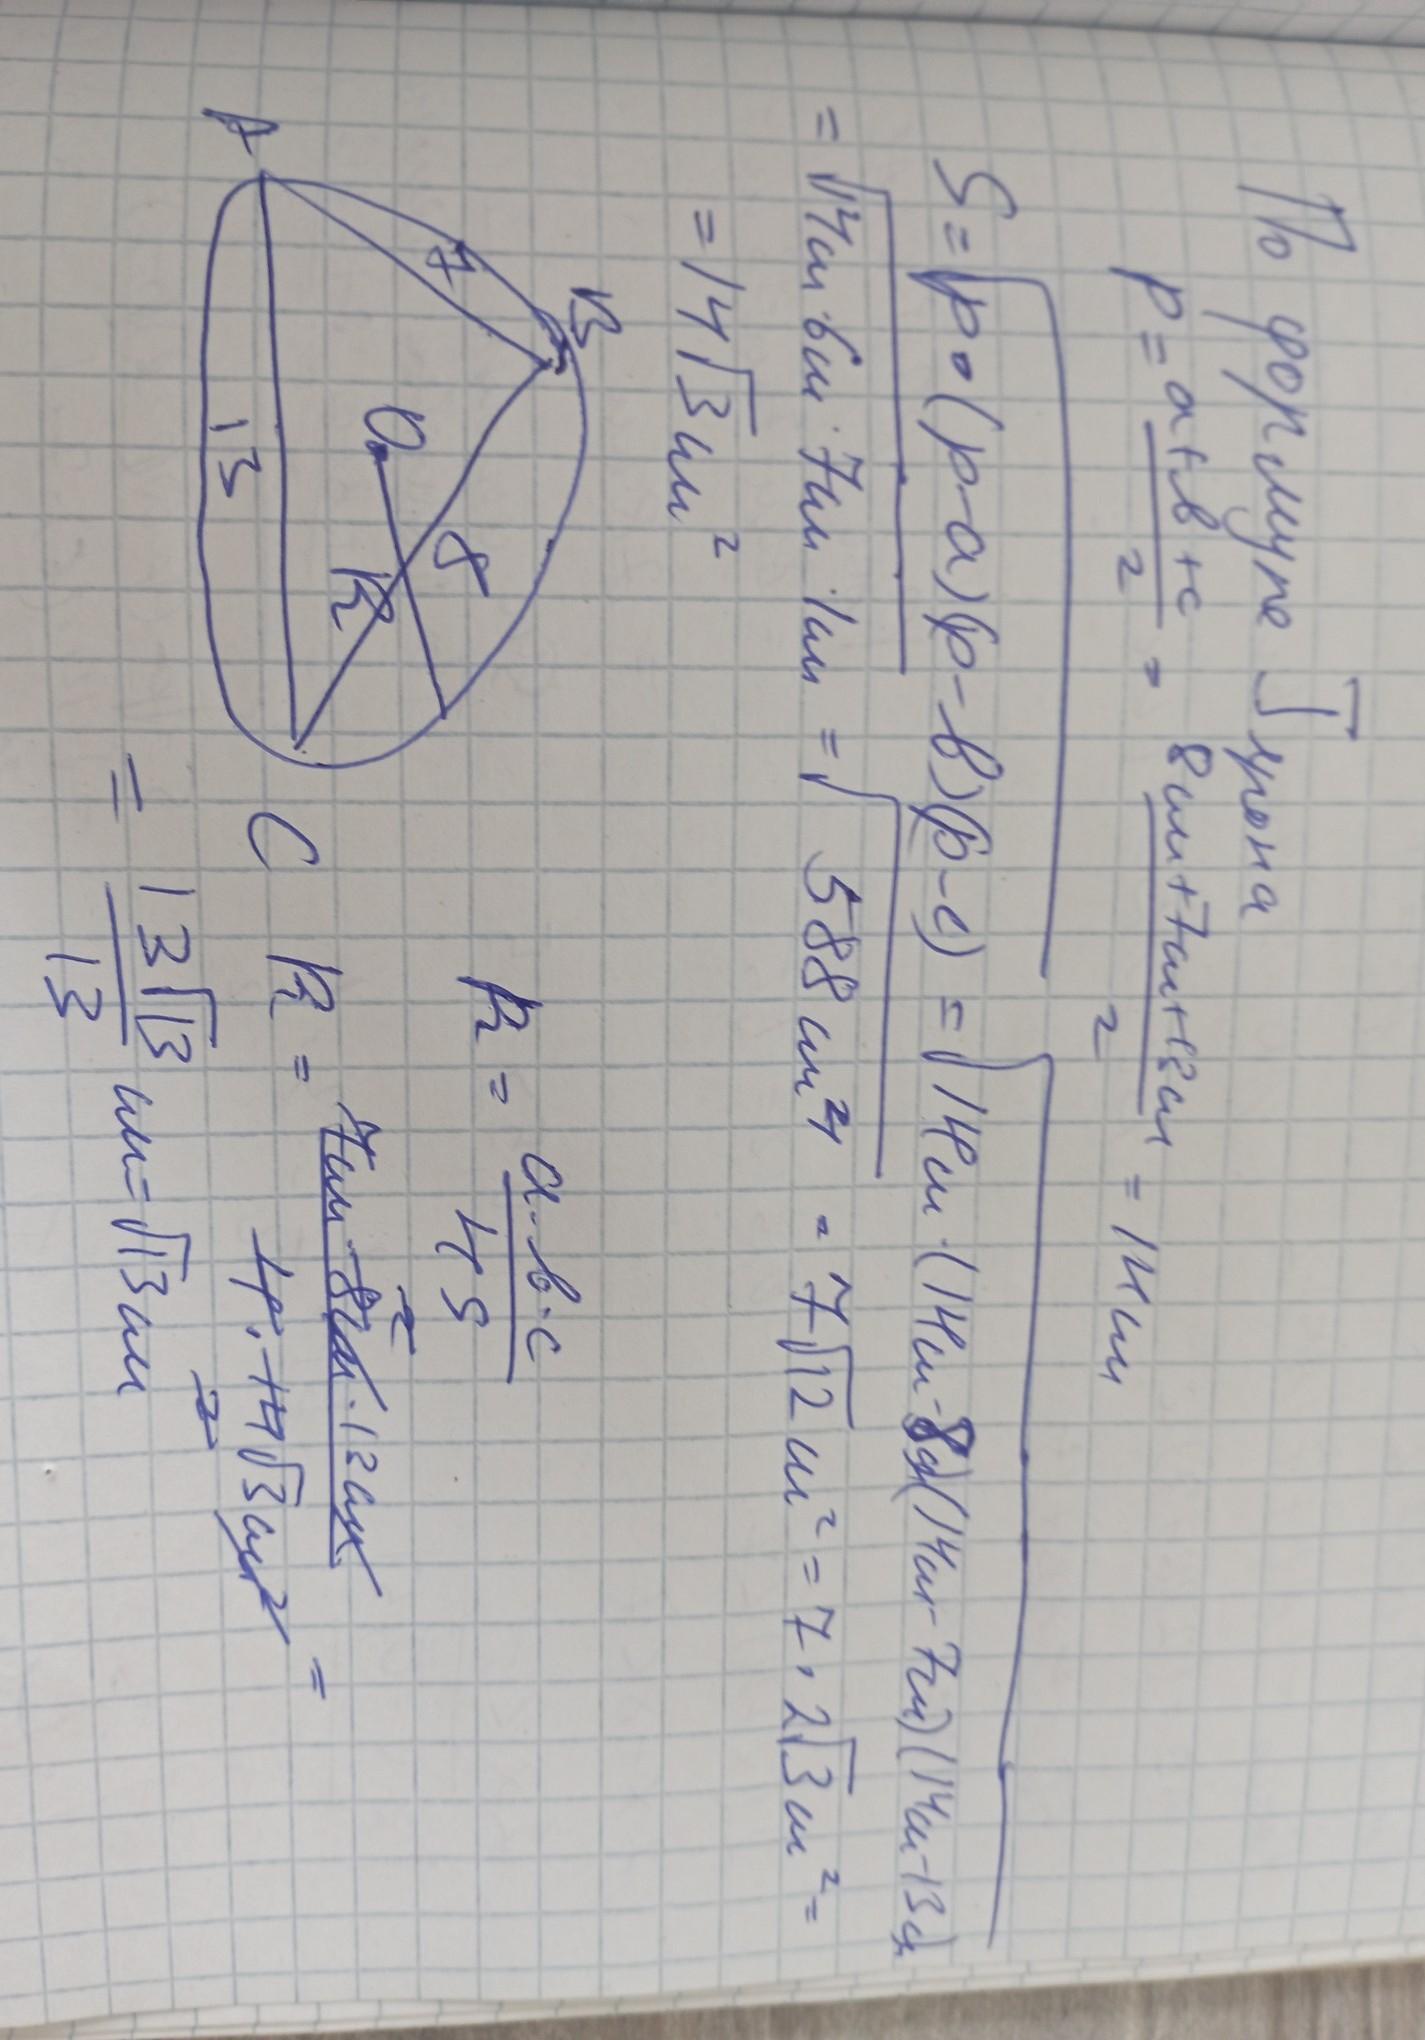 По формуле Герона
p = a+b+c/2 = 8см+7см+13см/2 = 14см
S = √p·(p-a)(p-b)(p-c) = √14см·(14см-8см)(14см-7см)(14см-13см)
= √14см·6см·7см·1см = √588см⁴ = 7√12см² = 7·2√3см² =
= 14√3см²
A
B
7
O
8
R
13
C
R = a·b·c/4S
R = 7см·8см·13см/4·14√3см² =
2
2
= 13√3/13 см = √13см